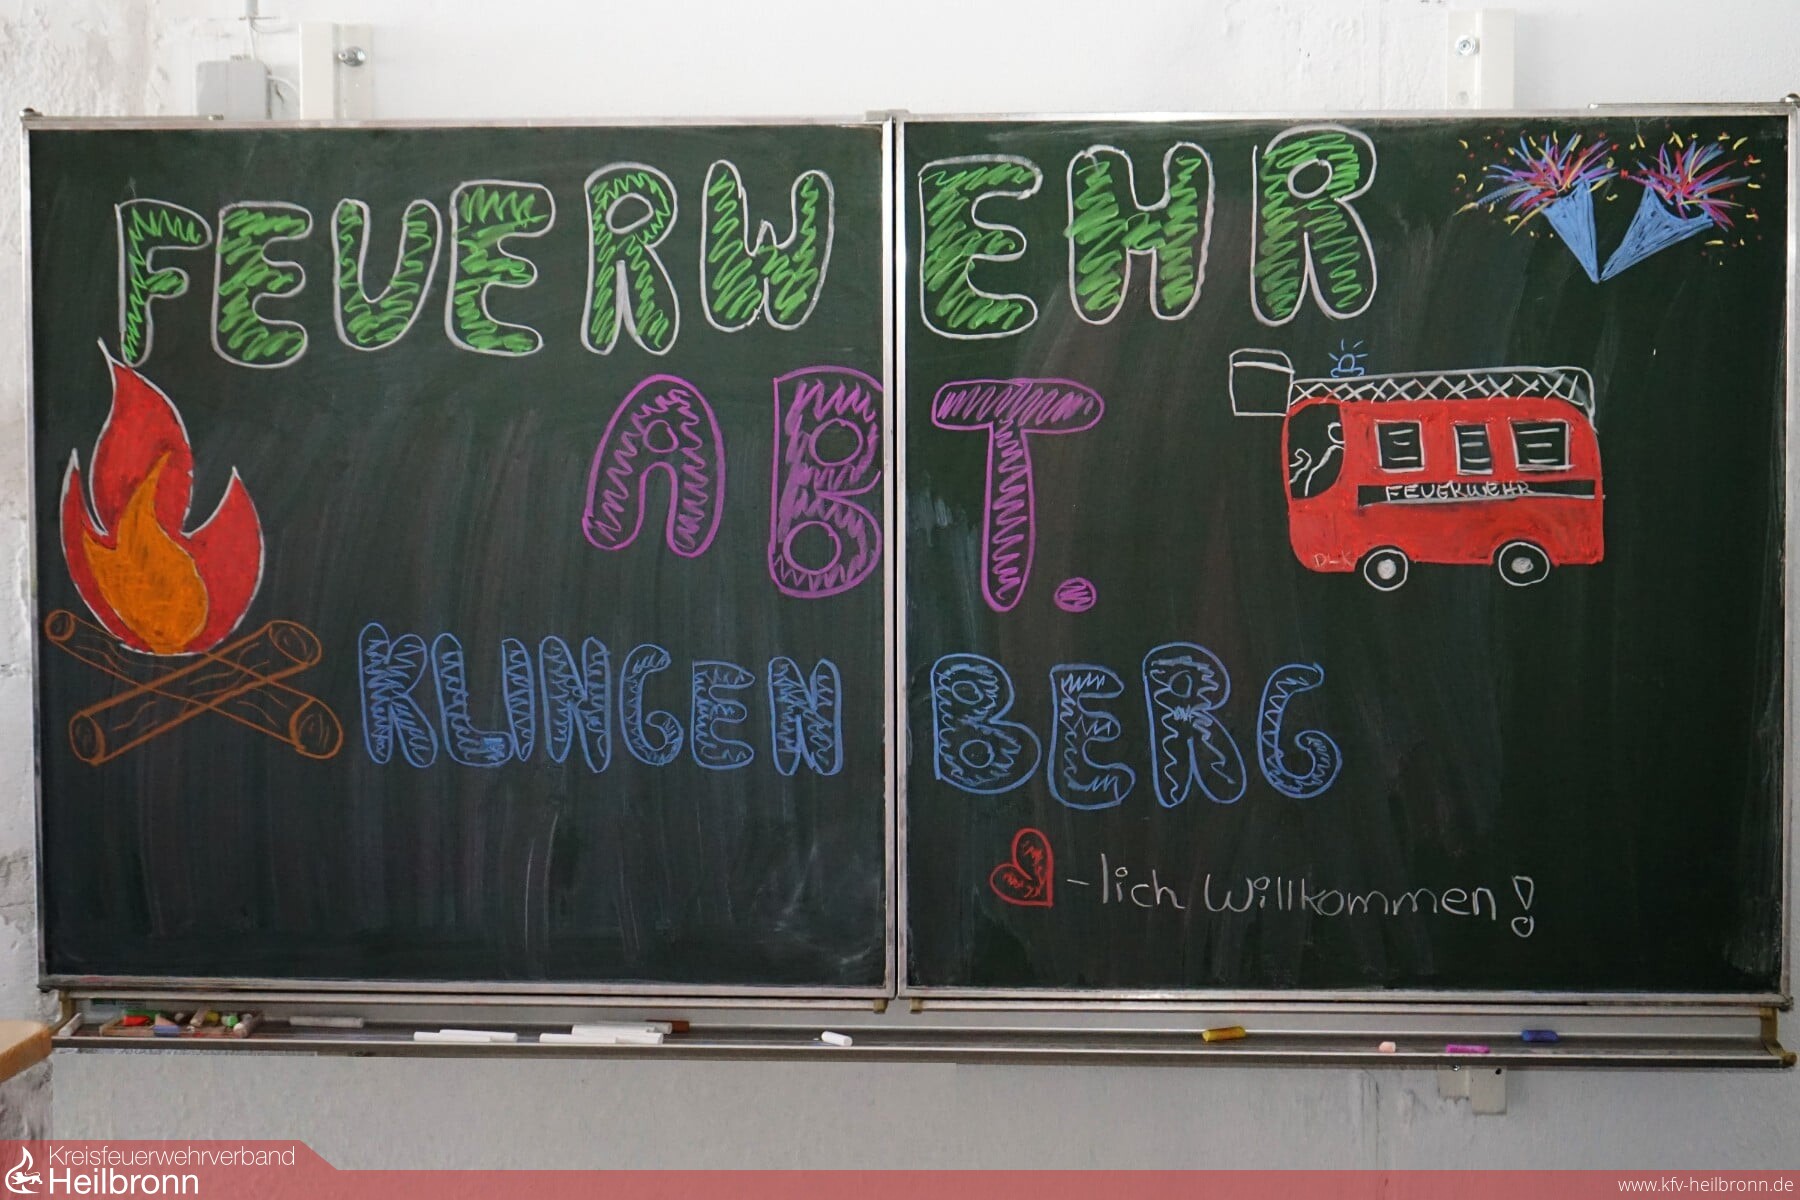 FEUERWEHR
ABT.
FEUERWEHR
DLK
KLINGENBERG
-lich Willkommen!
Kreisfeuerwehrverband
Heilbronn
www.kfv-heilbronn.de